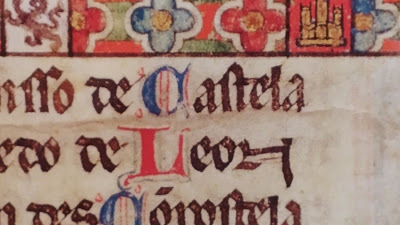 nsso de Castela
edo de Leon
n des Cõpostela